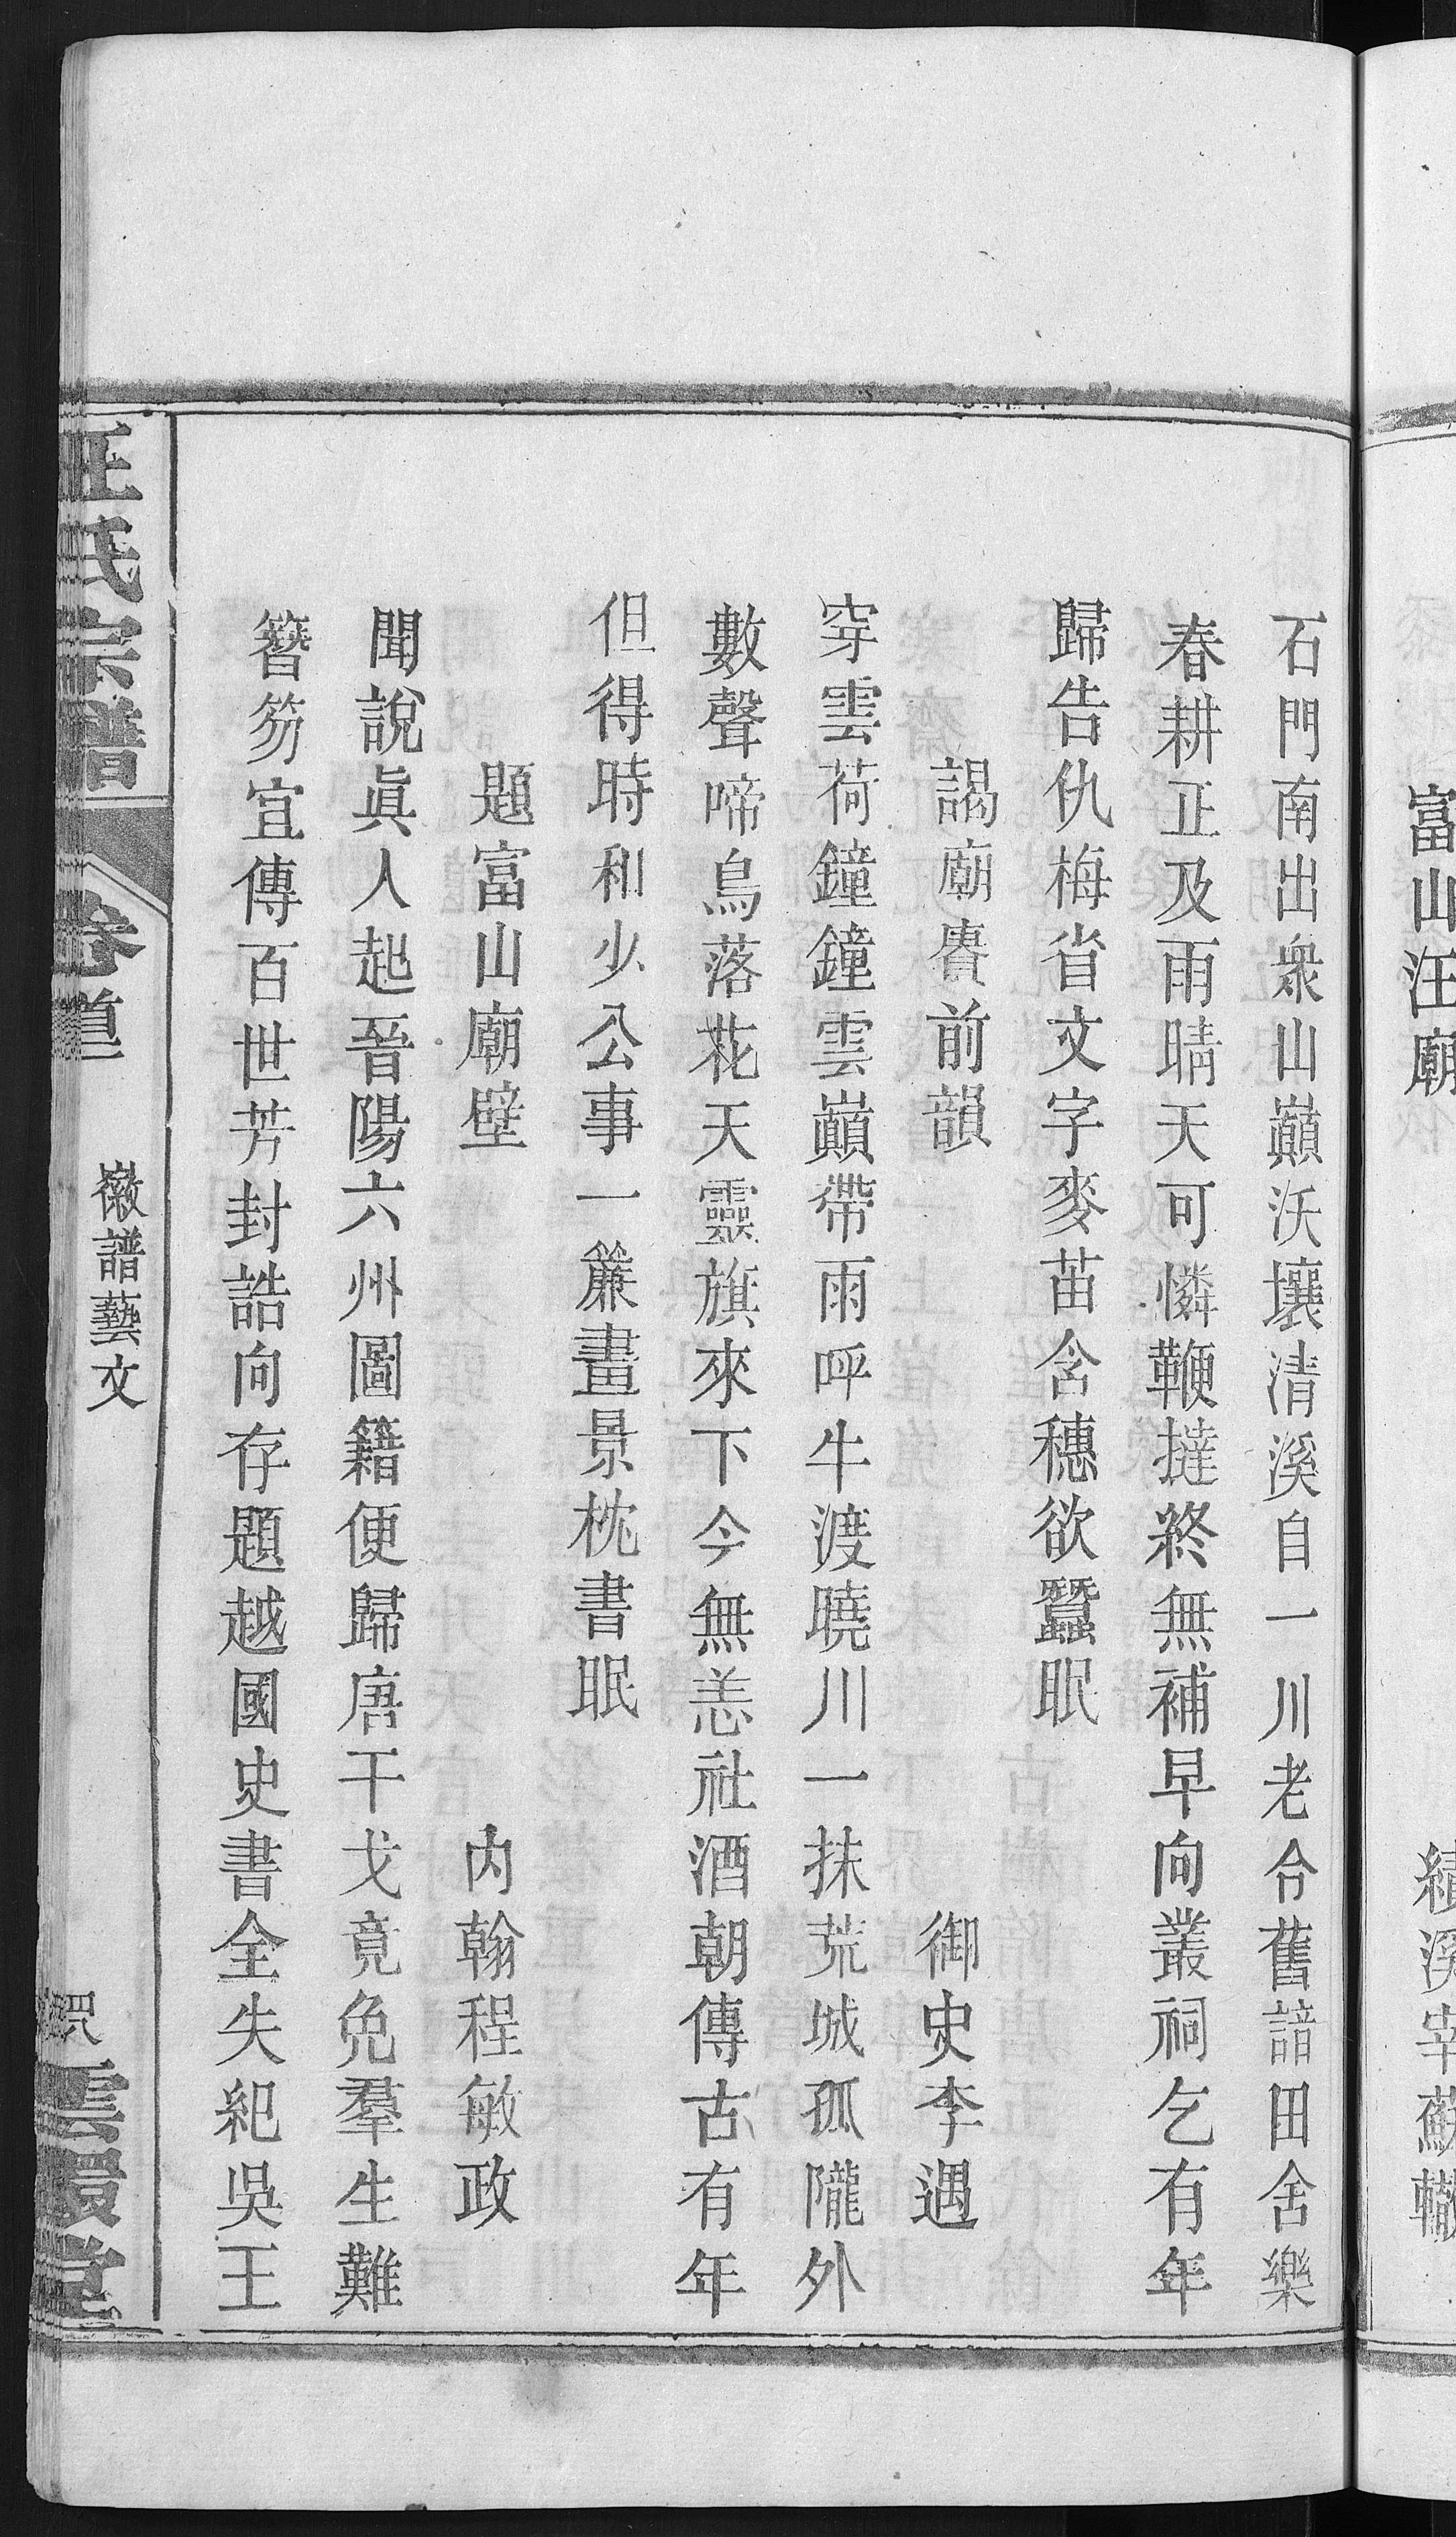 富山汪廟　績溪宰蘇轍
石門南出衆山巔沃壤清溪自一川老令舊諳田舍樂
春耕正及雨晴天可憐鞭撻終無補早向叢祠乞有年
歸告仇梅省文字麥苗含穗欲蠶眠
謁廟賡前韻　御史李遇
穿雲荷鐘鐘雲巔帶雨呼牛渡曉川一抹荒城孤隴外
數聲啼鳥落花天靈旗來下今無恙社酒朝傳古有年
但得時和少公事一簾晝景枕書眠
題富山廟壁　內翰程敏政
聞說眞人起晉陽六州圖籍便歸唐干戈竟免羣生難
簪笏宜傳百世芳封誥向存題越國史書全失紀吳王
汪氏宗譜　卷首　徽譜藝文　雲殿堂